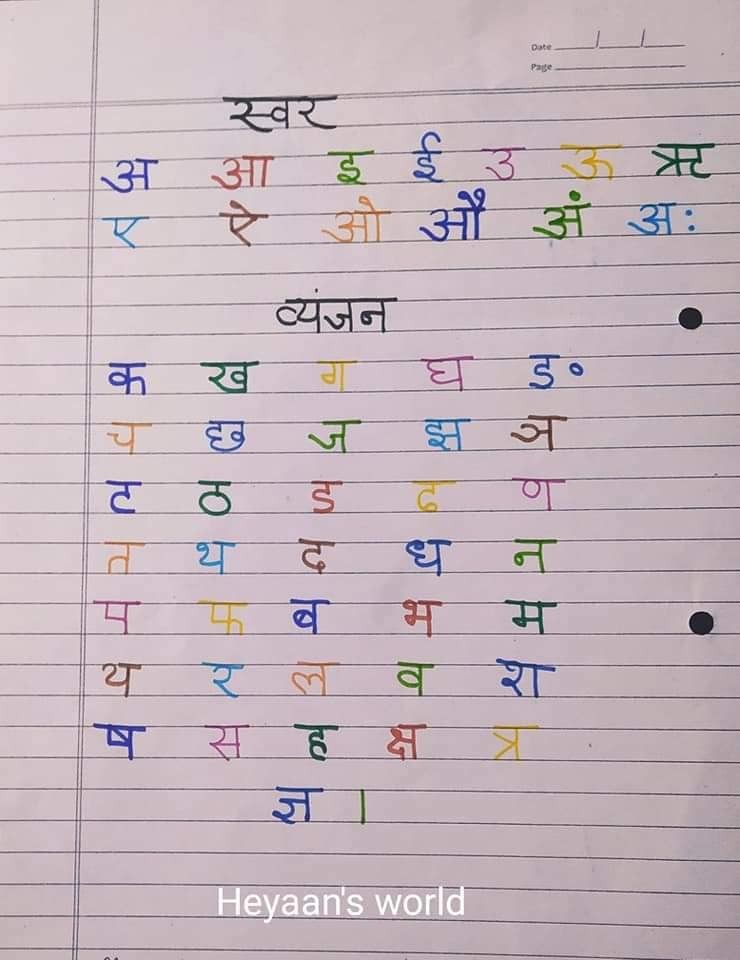 Date
Page
स्वर
अ आ इ ई उ ऊ ऋ
ए ऐ ओ औ अं अः
व्यंजन
क ख ग घ ङ
च छ ज झ ञ
ट ठ ड ढ ण
त थ द ध न
प फ ब भ म
य र ल व श
ष स ह क्ष त्र
ज्ञ ।
Heyaan's world